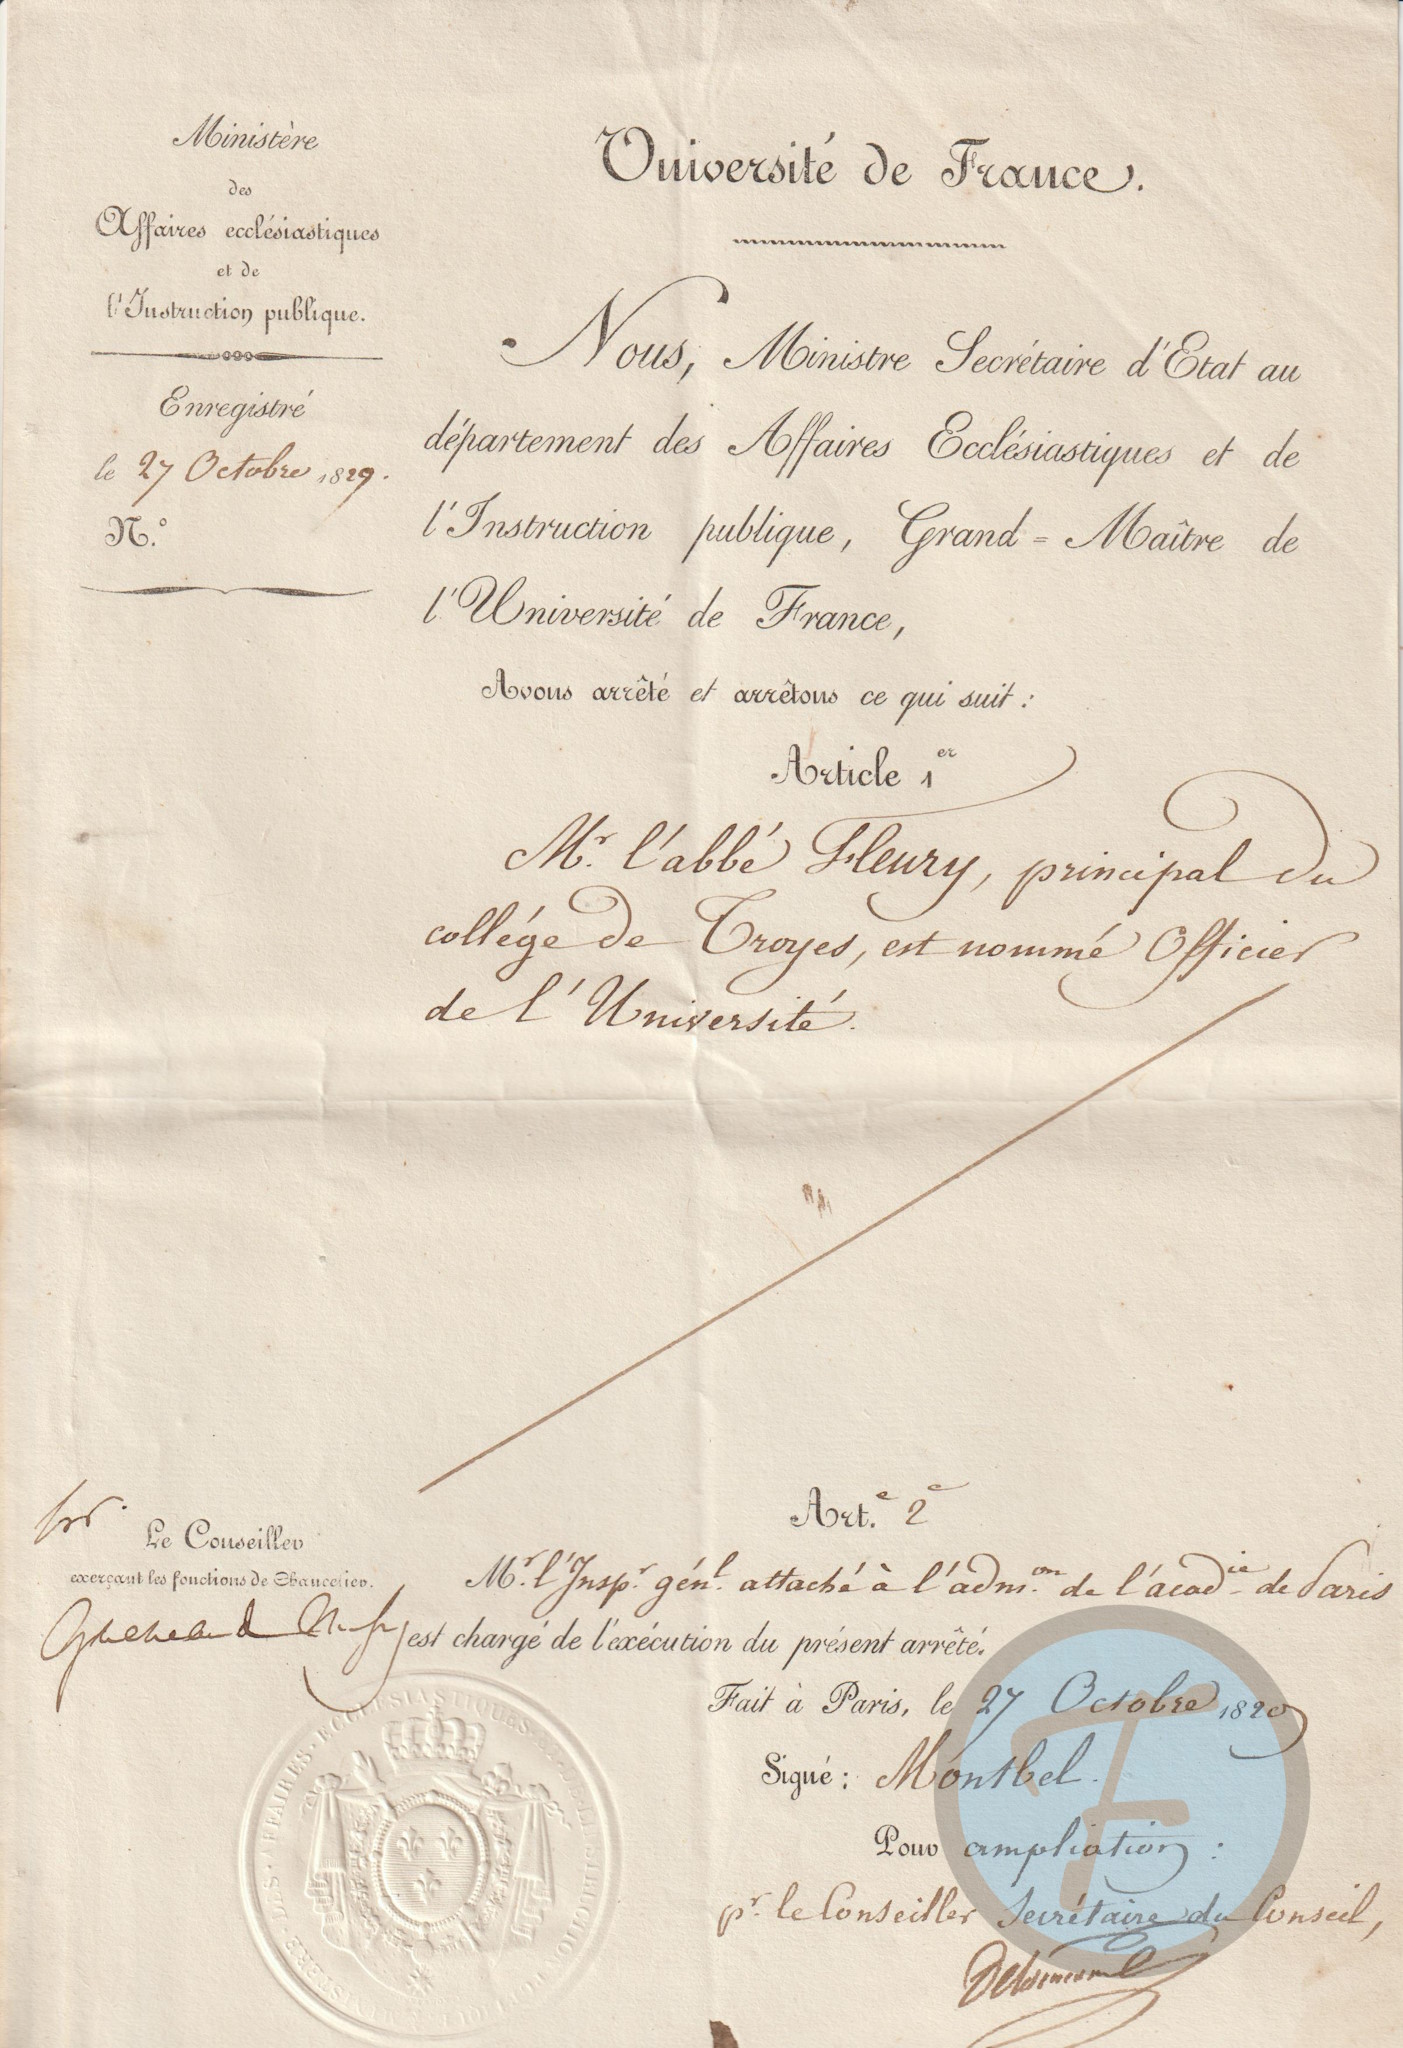 Ministère
des
Affaires ecclésiastiques
et de
l'Instruction publique.
Enregistré
le 27 Octobre 1829.
N.°
Université de France.
Nous, Ministre Secrétaire d'Etat au
département des Affaires Ecclésiastiques et de
l'Instruction publique, Grand=Maître de
l'Université de France,
Avons arrêté et arrêtons ce qui suit :
Article 1er
Mr. l'abbé Fleury, principal du
collége de Troyes, est nommé Officier
de l'Université.
Art.e 2e
Mr. l'Inspr. génl. attaché à l'admon. de l'acadie. de Paris
est chargé de l'exécution du présent arrêté.
Fait à Paris, le 27 Octobre 1829
Signé : Montbel.
Pour ampliation :
pr. le Conseiller Secrétaire du Conseil,
Le Conseiller
exerçant les fonctions de Chancelier.
MINISTERE DES AFFAIRES ECCLESIASTIQUES ET DE L'INSTRUCTION PUBLIQUE
TF